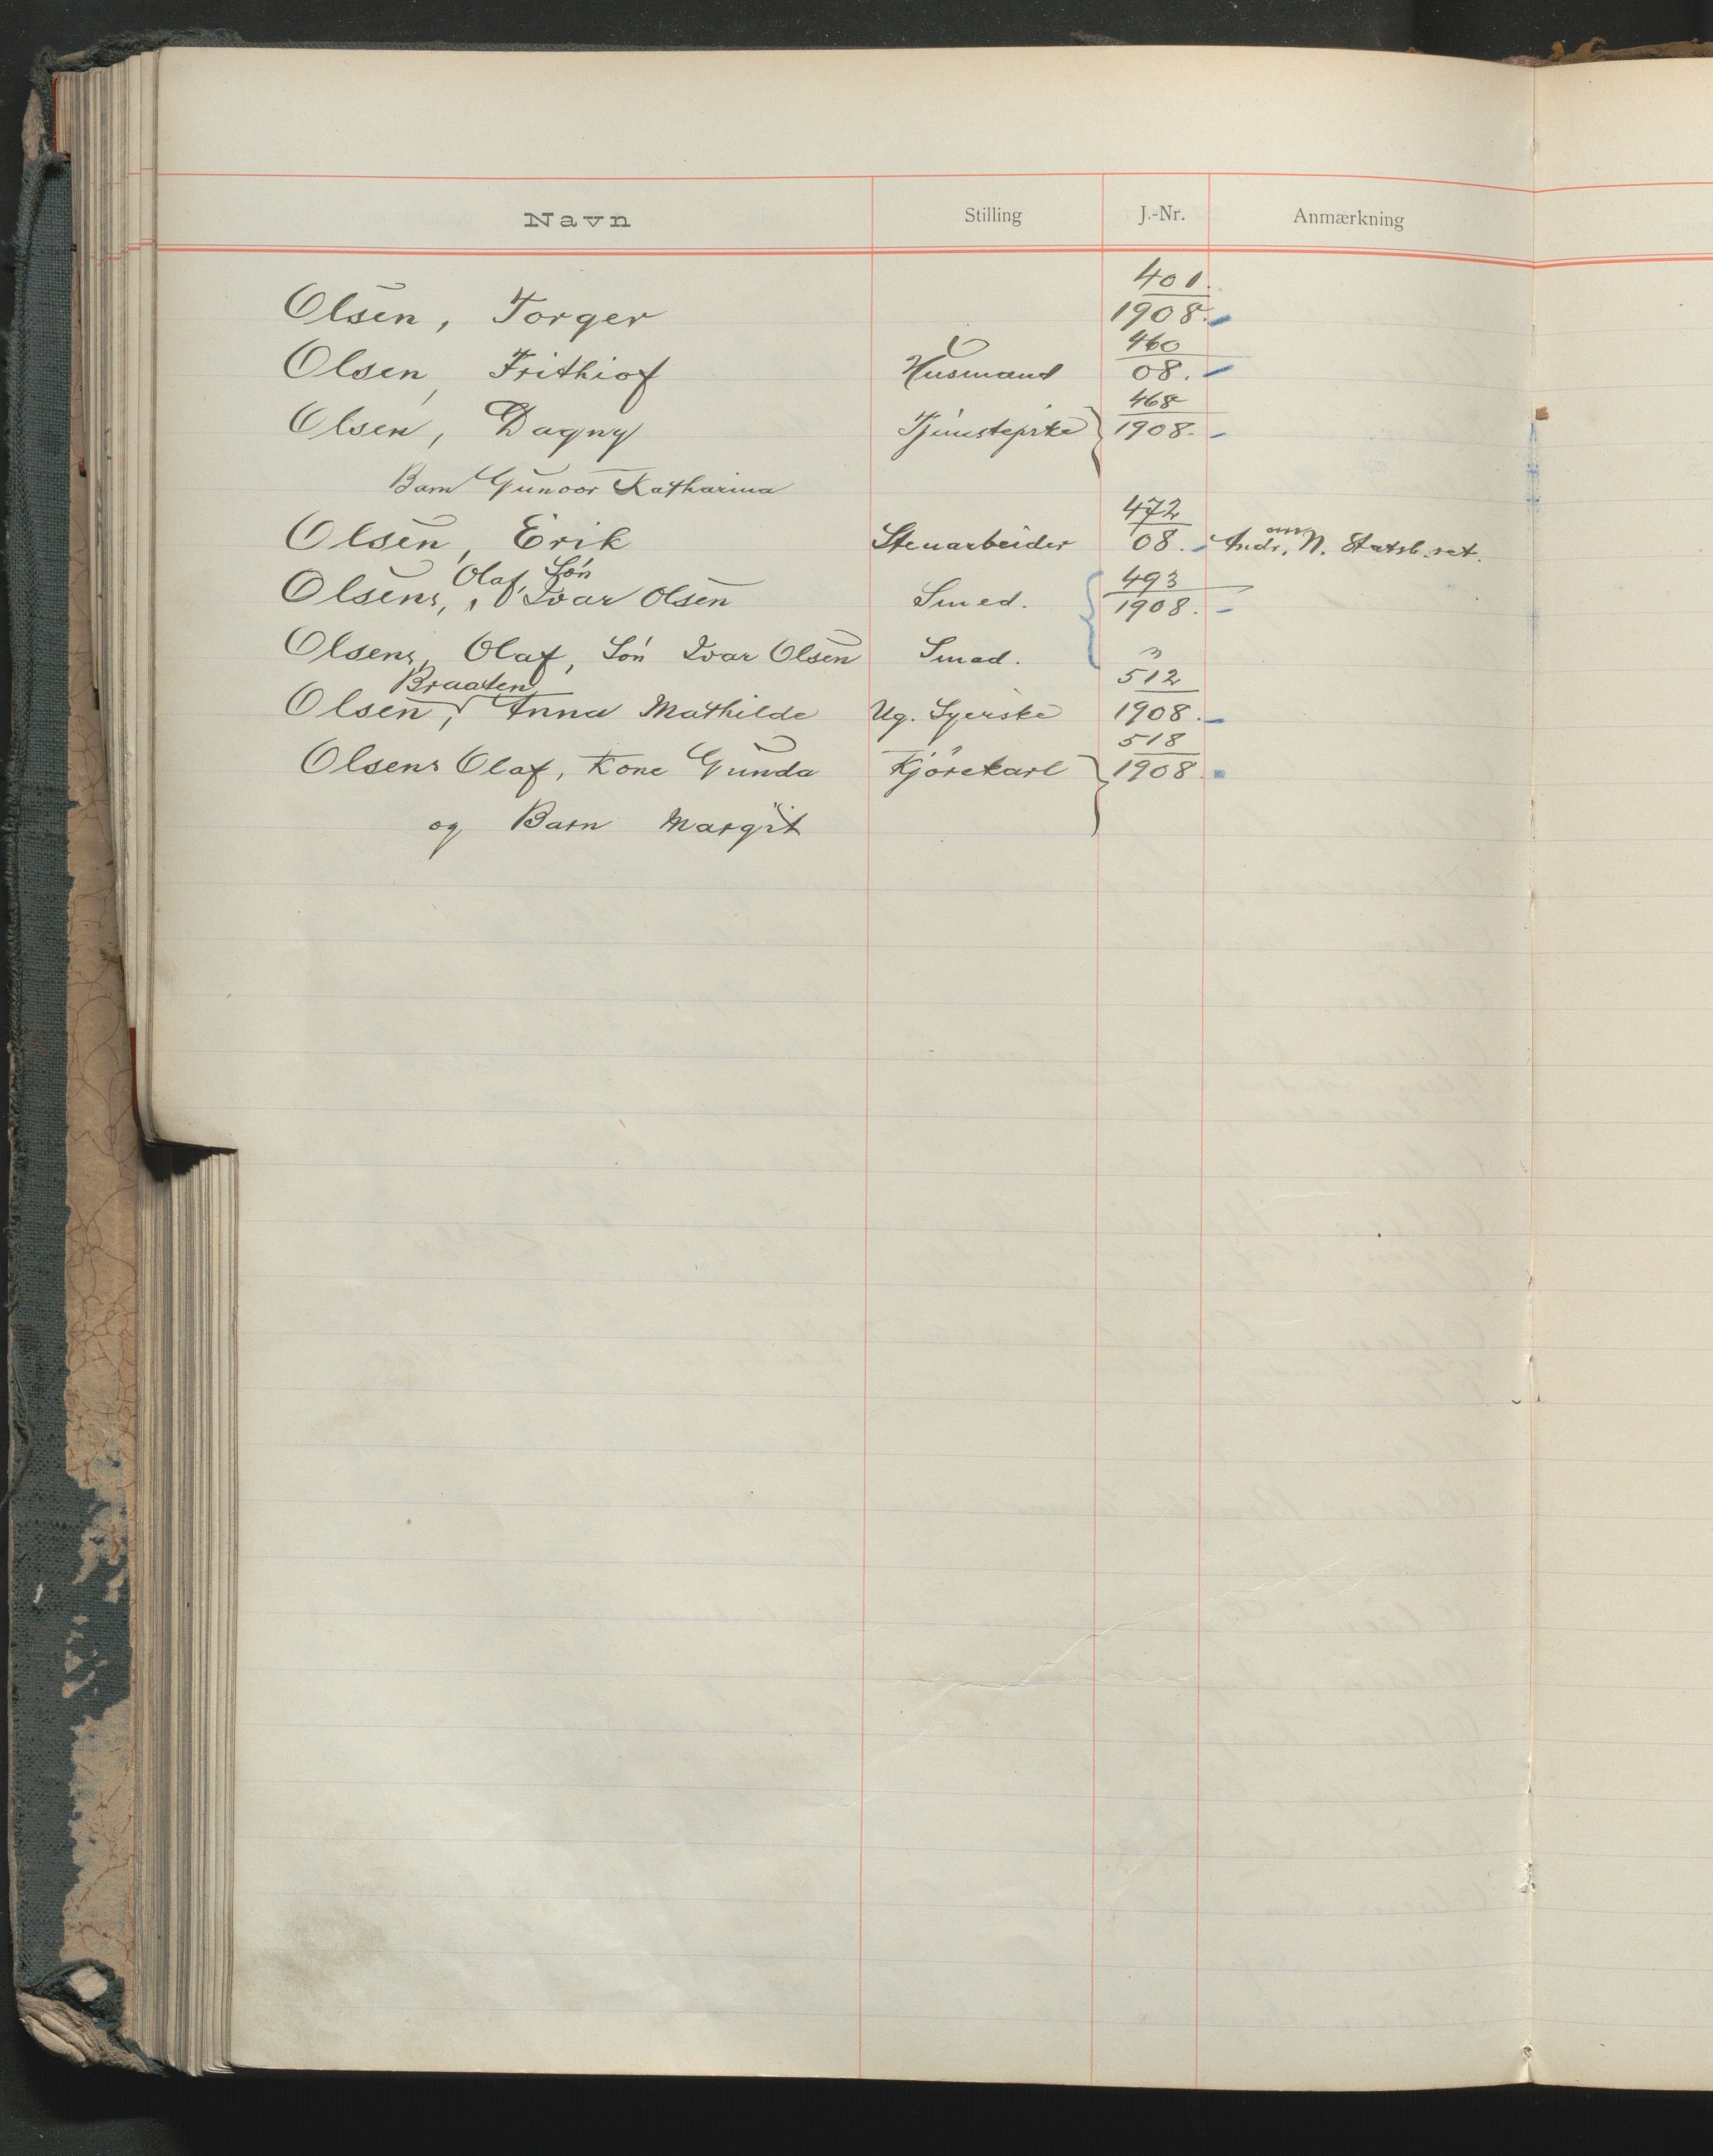 Navn Stilling J.-Nr. Anmærkning
Olsen, Torger 401/1908.
Olsen, Frithiof Husmand 460/08.
Olsen, Dagny 468/1908.
Barn Gunvor Katharina
Olsen, Erik Stenarbeider 472/08. Andr. N. Statsb.ret.
Olsens, Olaf, Søn Ivar Olsen Smed. 493/1908.
Olsens, Olaf, Søn Ivar Olsen Smed. "
Olsen, Braaten, Anna Mathilde Ug. Syerske 512/1908.
Olsens Olaf, Kone Gunda Kjørekarl 518/1908.
og Barn Margit